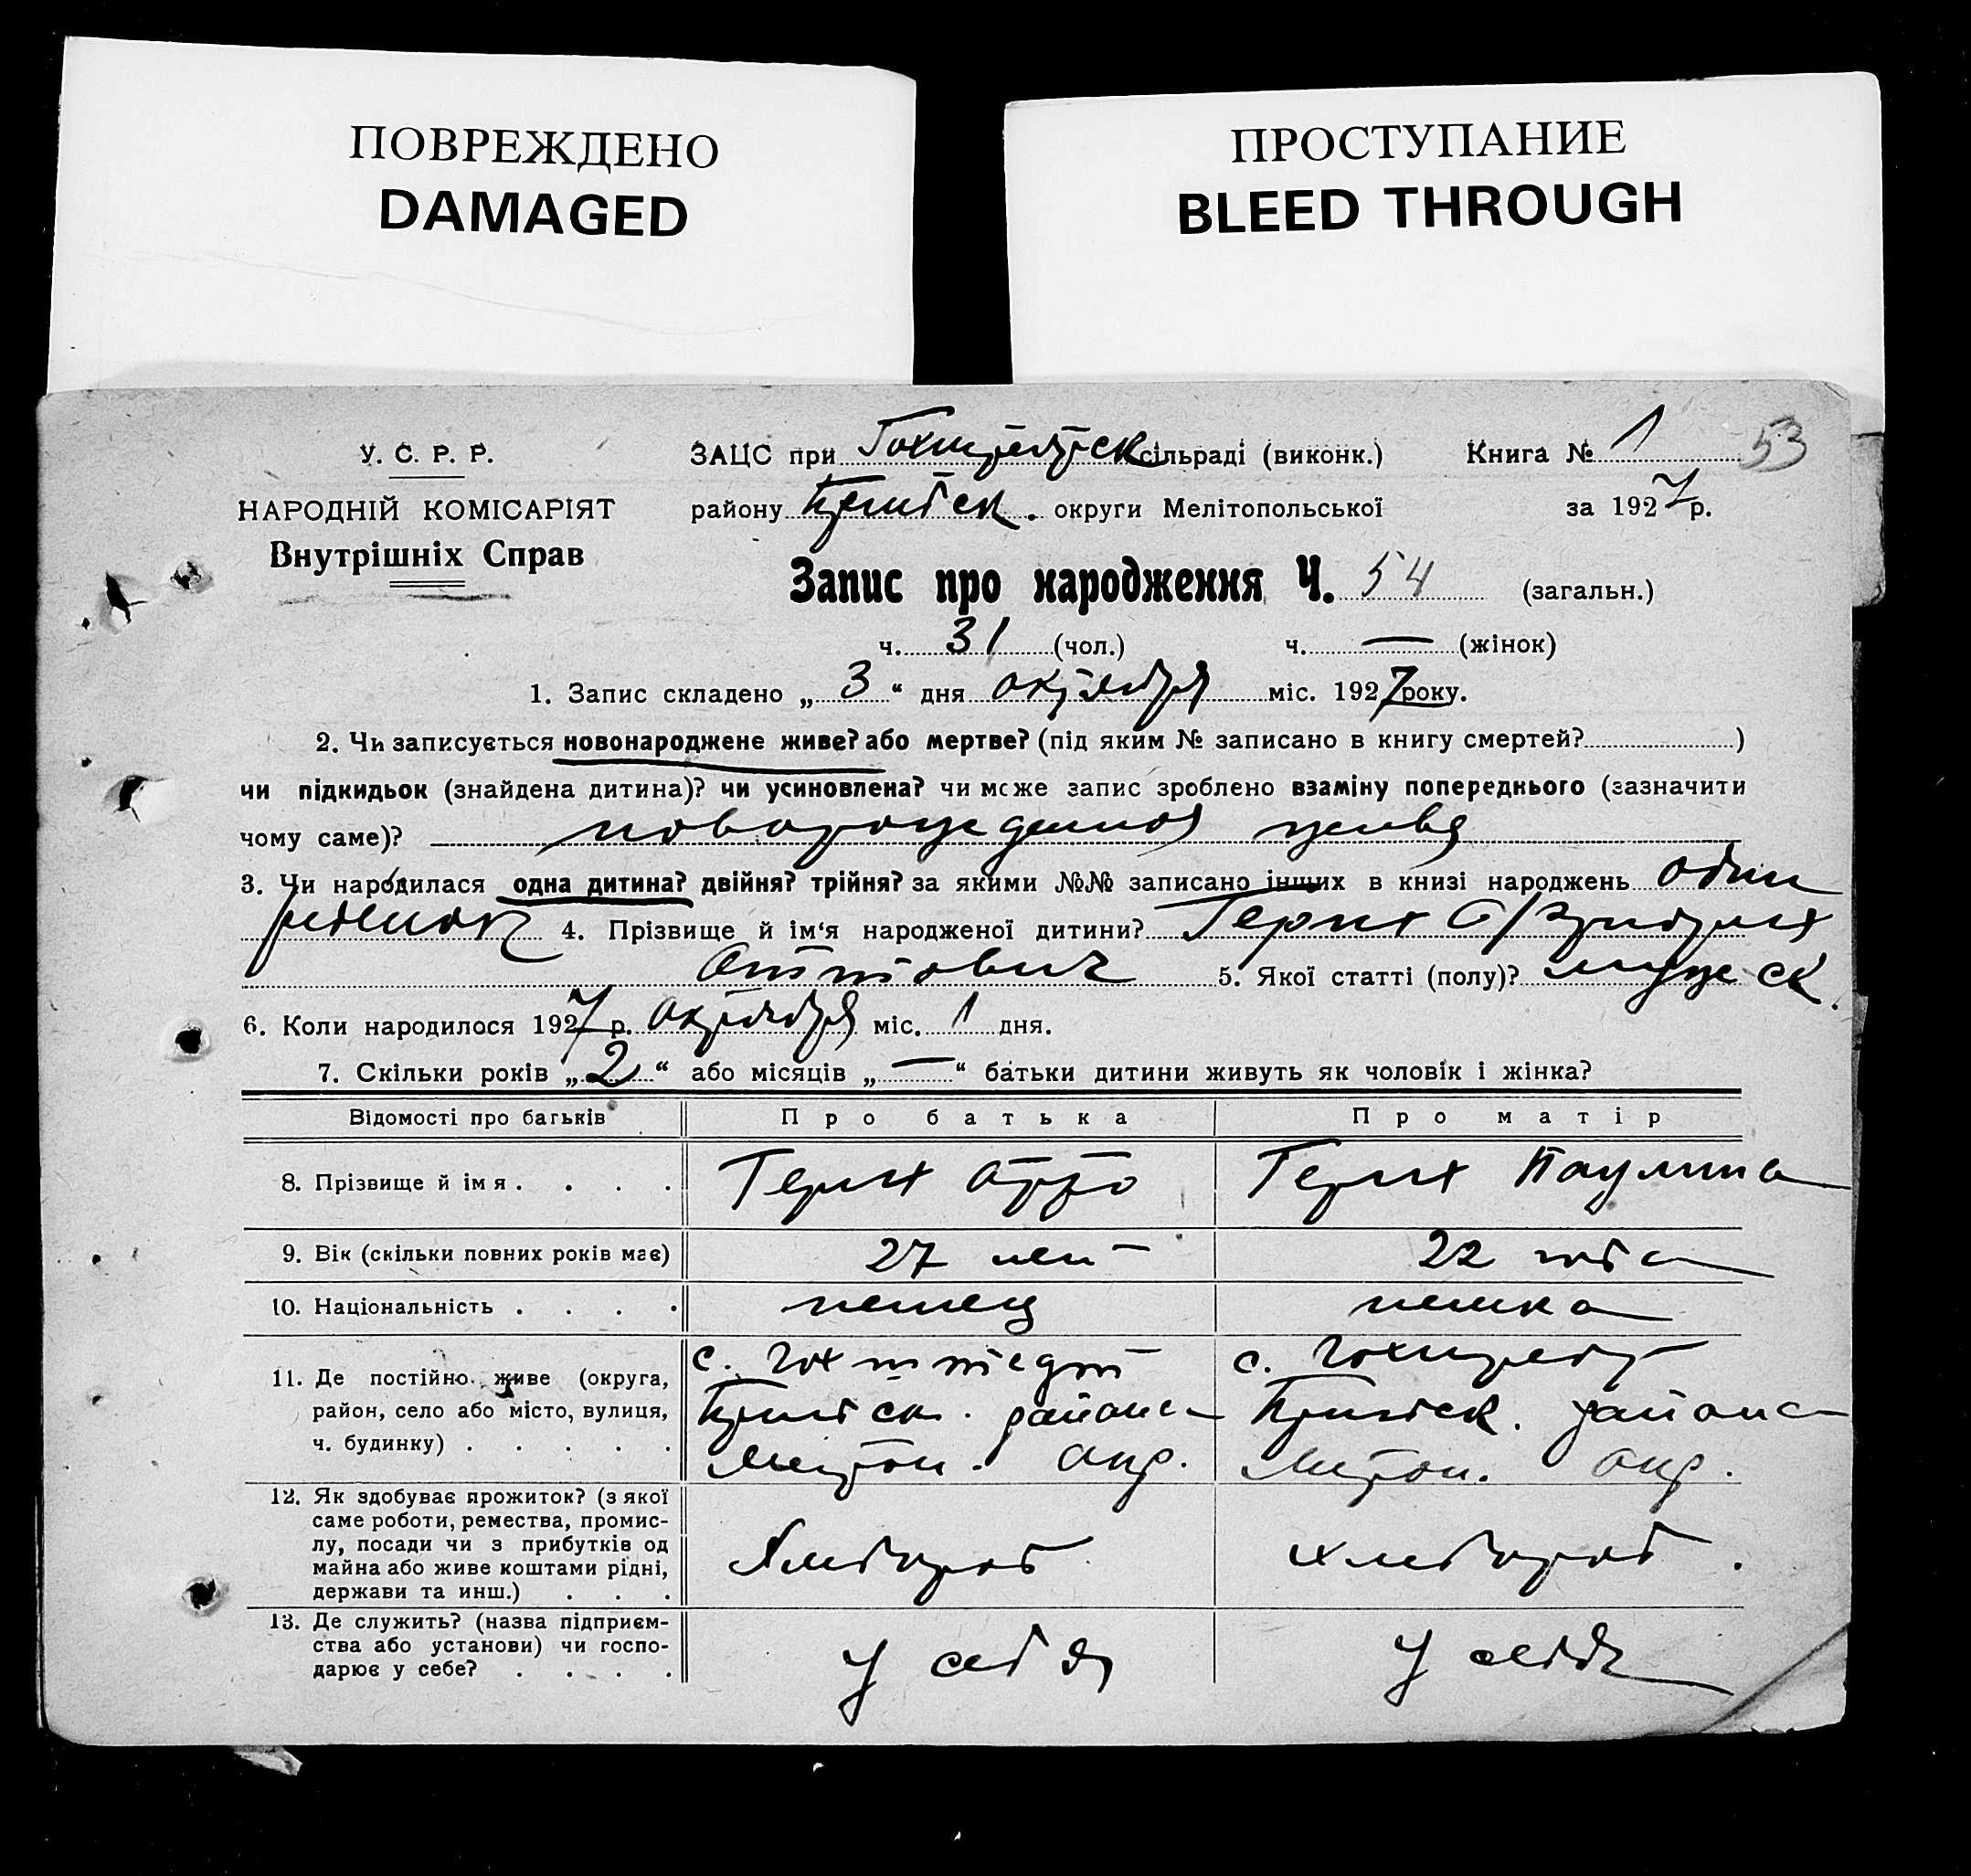 ПОВРЕЖДЕНО
DAMAGED
ПРОСТУПАНИЕ
BLEED THROUGH
У. С. Р. Р.
НАРОДНІЙ КОМІСАРІЯТ
Внутрішніх Справ
ЗАЦС при Гохштедтск сільраді (виконк.) Книга № 1 53
району округи Мелітопольської за 1927 р.
Запис про народження Ч. 54 (загальн.)
ч. 31 (чол.) ч. — (жінок)
1. Запис складено „ 3 “ дня октября міс. 1927 року.
2. Чи записується новонароджене живе? або мертве? (під яким № записано в книгу смертей? )
чи підкидьок (знайдена дитина)? чи усиновлена? чи може запис зроблено взаміну попереднього (зазначити
чому саме)?
3. Чи народилася одна дитина? двійня? трійня? за якими №№ записано інших в книзі народжень один
ребенок 4. Прізвище й ім‘я народженої дитини? Герих
Оттович 5. Якої статті (полу)? мужск.
6. Коли народилося 1927 р. октября міс. 1 дня.
7. Скільки років „ 2 “ або місяців „ — “ батьки дитини живуть як чоловік і жінка?
Відомості про батьків Про батька Про матір
8. Прізвище й ім я . . . . Герих Отто Герих Паулина
9. Вік (скільки повних років має) 27 лет 22 года
10. Національність . . . . немец немка
11. Де постійно живе (округа, с. Гохштедт с. Гохштедт
район, село або місто, вулиця, района района
ч. будинку) . . . . . Мелитоп. окр. Мелитоп. окр.
12. Як здобуває прожиток? (з якої
саме роботи, ремества, промис-
лу, посади чи з прибутків од хлебороб хлебороб.
майна або живе коштами рідні,
держави та инш.) . . .
13. Де служить? (назва підприєм-
ства або установи) чи госпо- у себя у себя
дарює у себе? . . . .